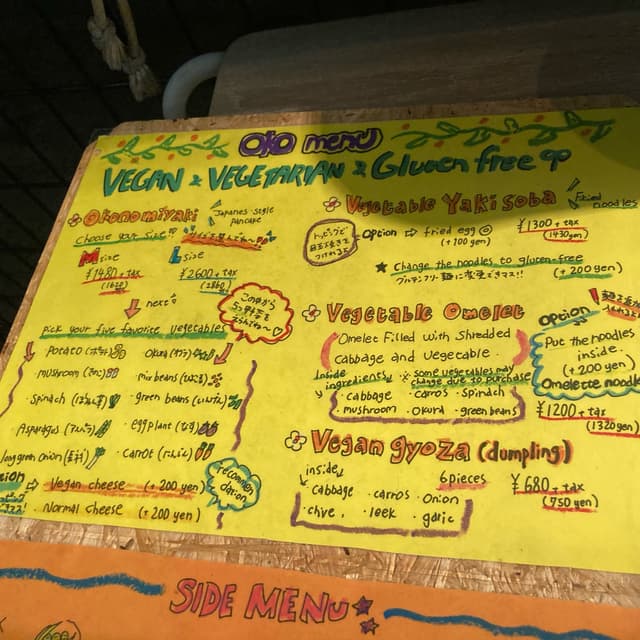 OKO menu
VEGAN & VEGETARIAN & Gluten free OP
Okonomiyaki
Japanes style pancake
choose your size!!
M size
L size
¥1480 + tax
¥2600 + tax
(2860)
next
この中から
pick your five favorite vegetables
Potato (ポテト)
Okura (オクラ)
mushroom (きのこ)
mix beans (まめ)
Spinach (ほうれん草)
green beans (いんげん)
Asparagus (アスパラ)
eggplant (なす)
long green onion (長ネギ)
carrot (にんじん)
recommendation
⇨ Vegan cheese (+200 yen)
Normal cheese (+200 yen)
Vegetable Yaki soba
Fried noodles
トッピングで
目玉焼きを
つけれるよ
Option ⇨ fried egg
(+100 yen)
¥1300 + tax
(1430yen)
★ Change the noodles to gluten-free
(+200 yen)
グルテンフリー麺に変更できマス!!
Vegetable Omelet
Omelet Filled with Shredded
cabbage and vegetable.
Inside ingredients
※ some vegetables may
change due to purchase
cabbage · carros · spinach
mushroom · okura · green beans
Option
Put the noodles
inside.
(+200 yen)
Omelette noodle
¥1200 + tax
(1320yen)
Vegan gyoza (dumpling)
inside
6pieces
¥680 + tax
(750 yen)
· cabbage · carros · onion
· chive · leek · garlic
SIDE MENU